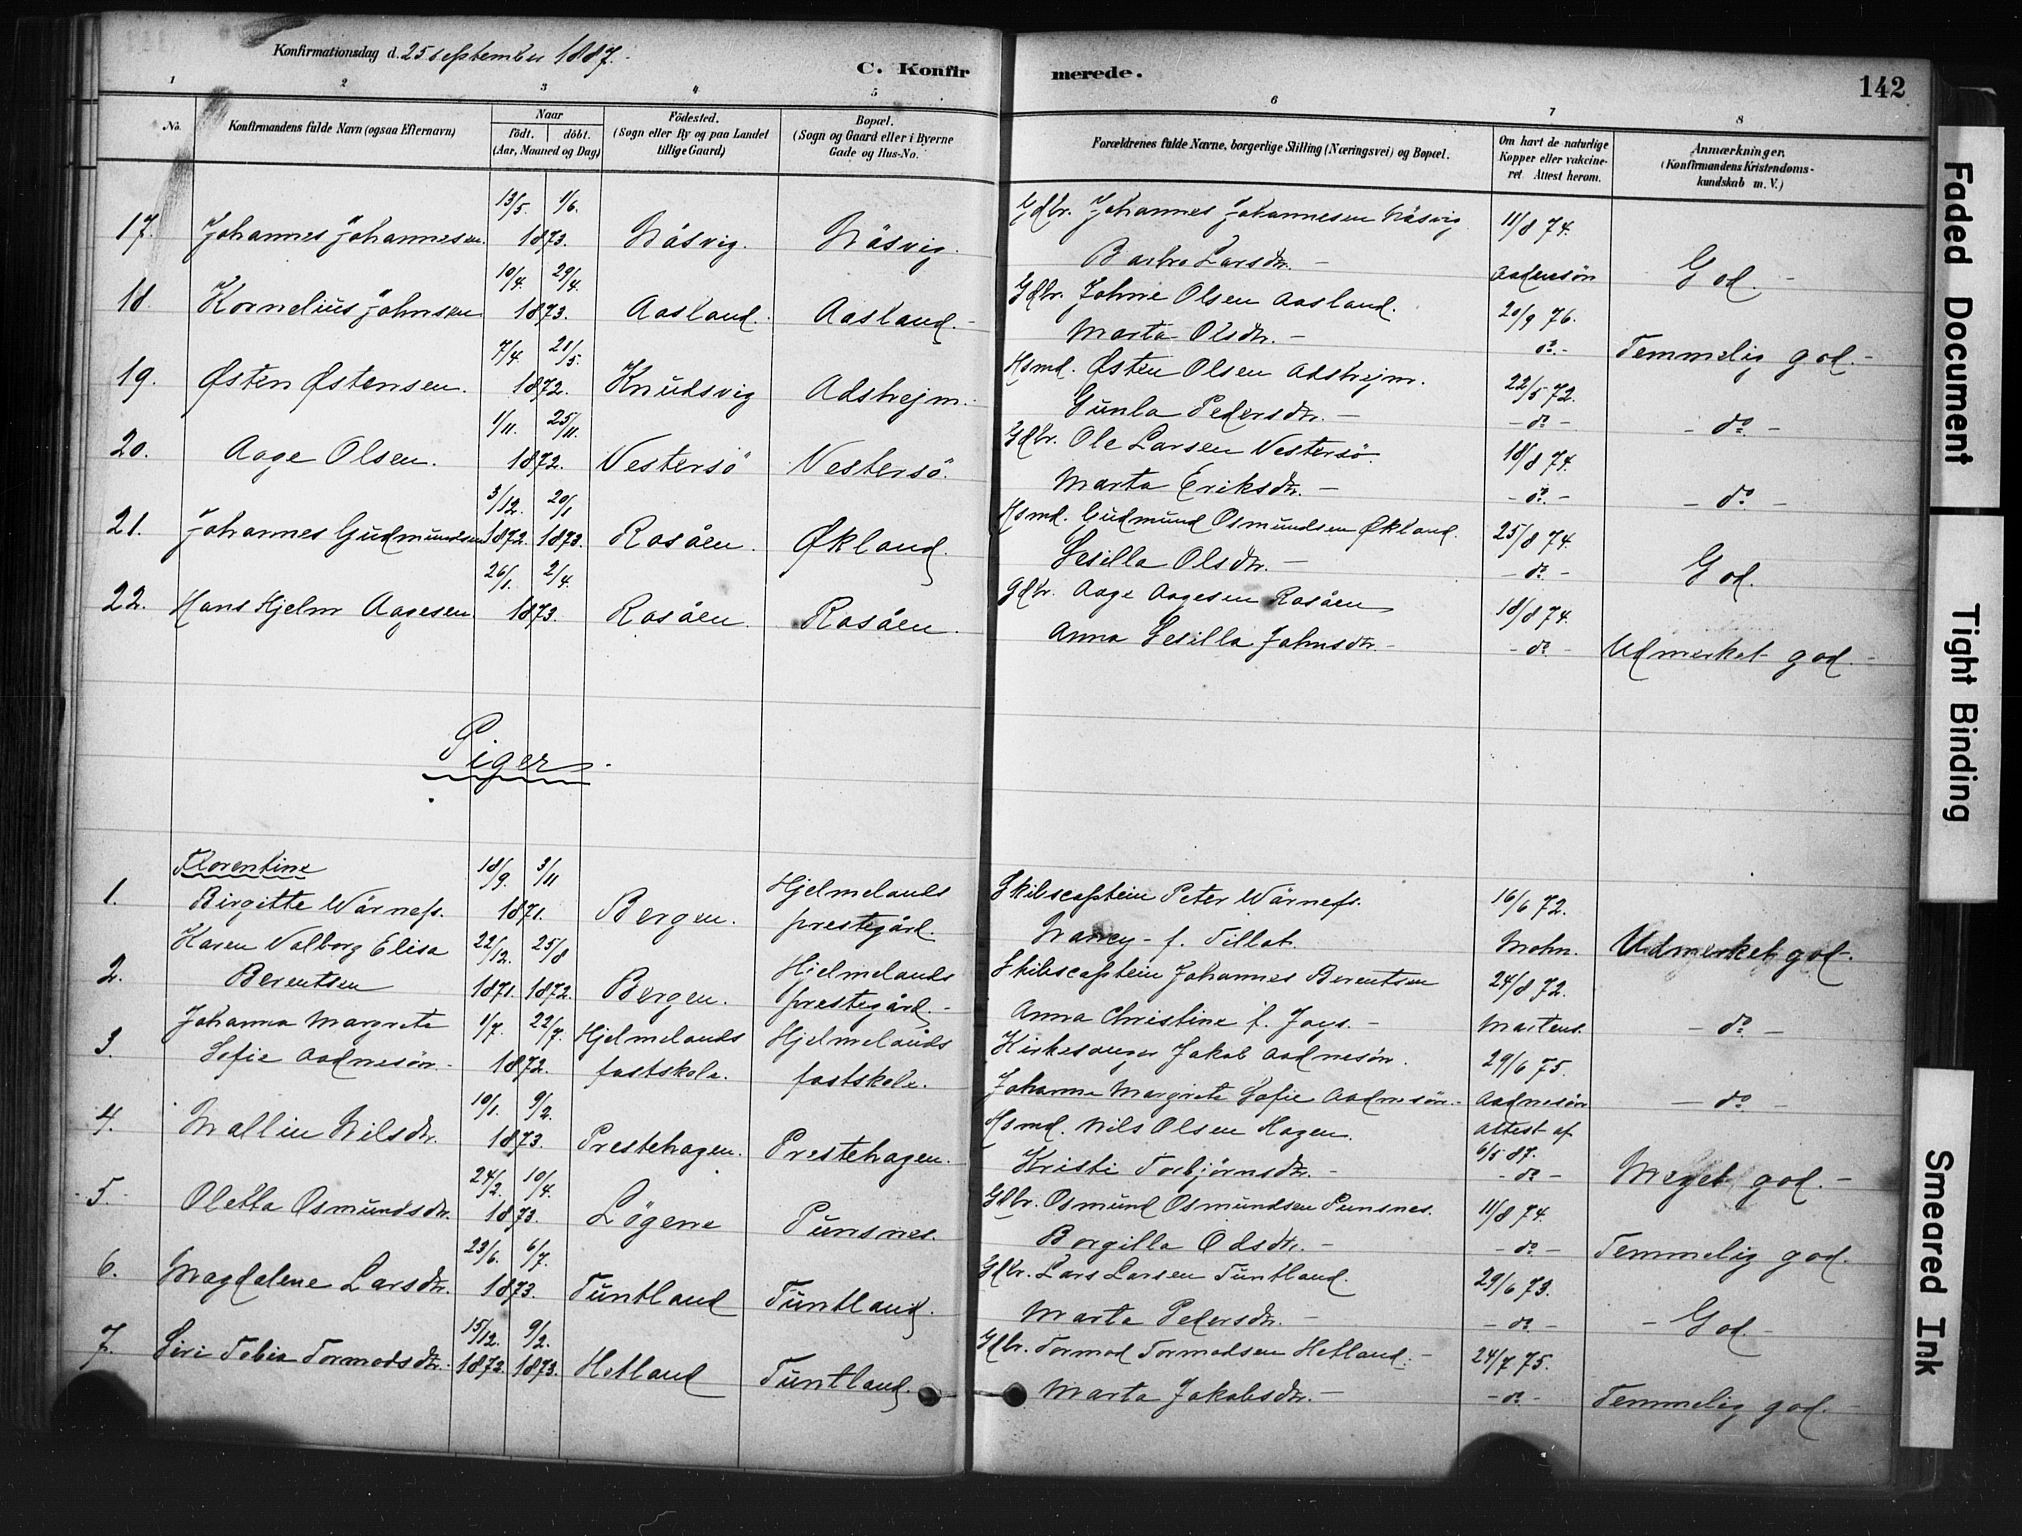 Konfirmationsdag d. 25 september 1887.
C. Konfirmerede.
142
1 2 3 4 5 6 7 8
No.
Konfirmandens fulde Navn (ogsaa Efternavn)
Naar
födt. döbt.
(Aar, Maaned og Dag)
Födested.
(Sogn eller By og paa Landet
tillige Gaard)
Bopæl.
(Sogn og Gaard eller i Byerne
Gade og Hus-No.
Forældrenes fulde Navne, borgerlige Stilling (Næringsvei) og Bopæl.
Om havt de naturlige
Kopper eller vakcine-
ret. Attest herom.
Anmærkninger.
(Konfirmandens Kristendoms-
kundskab m. V.)
17. Johannes Johannesen 13/5. 1/6. 1873. Nåsvig. Nåsvig. Gdbr. Johannes Johannesen Nåsvig 11/8 74.
Barbro Larsdtr. – Aadnesön God. –
18. Kornelius Johnsen 10/4. 29/4. 1873. Aasland. Aasland. – Gdbr. Johne Olsen Aasland. 20/9 76.
Marta Olsdtr. – do. – Temmelig god. –
19. Østen Østensen. 7/4. 21/5. 1872. Knudsvig Adstrejm. Hsmd. Østen Olsen Adstrejm. 22/5 72.
Gunla Pedersdtr. – – do – – do. –
20. Aage Olsen. 1/11. 25/11. 1872. Vestersö Vestersö. Gdbr. Ole Larsen Vestersö. 18/8 74.
Marta Eriksdtr. – – do. – – do –
21. Johannes Gudmundsen 3/12. 20/1 1872. 1873. Rosåen. Økland. Hsmd. Gudmund Osmundsen Økland. 25/8 74.
Sesilla Olsdtr. – – do. – God.
22. Hans Hjelm Aagesen. 26/1. 2/4. 1873. Rosåen. Rosåen. Gdbr. Aage Aagesen Rosåen 18/8 74.
Anna Sesilla Johnsdtr. – – do. – Udmerket god. –
Piger.
Florentine
1. Birgitte Wårnefs. 18/9. 3/11 1871. Bergen. Hjelmelands prestegård. Skibscaptein Peter Wårnefs. 16/6 72.
Nancy – f. Tillot. Mohn. Udmerket god. –
2. Karen Valborg Elisa Berentsen 22/12. 25/8 1871. 1872. Bergen. Hjelmelands prestegård. – Skibscaptein Johannes Berentsen 24/8 72.
Anna Christine f. Joys. – Martens. – do –
3. Johanna Margrete Sofie Aadnesön. 1/7. 22/7. 1872. Hjelmelands fastskole. Hjelmelands fastskole. Kirkesanger Jakob Aadnesön. 29/6 75.
Johanna Margrete Sofie Aadnesön. – Aadnesön – do –
4. Mallin Nilsdtr. 10/1. 9/2. 1873. Prestehagen. Prestehagen. Hsmd. Nils Olsen Hagen. Attest af 6/5 87.
Kristi Torbjörnsdtr. – – do – Meget god. –
5. Oletta Osmundsdtr. 24/2. 10/4. 1873. Løgene Punsnes. Gdbr. Osmund Osmundsen Punsnes. 11/8 74.
Borgilla Odsdtr. – – do – Temmelig god.
6. Magdalene Larsdtr. 23/6. 6/7. 1873. Tuntland Tuntland. Gdbr. Lars Larsen Tuntland. 29/6 73.
Marta Pedersdtr. – – do. – – God. –
7. Siri Tobia Tormodsdtr. 15/12. 9/2. 1872. 1873. Hetland Tuntland. Gdbr. Tormod Tormodsen Hetland. – 24/7 75.
Marta Jakobsdtr. – – do. – Temmelig god. –
Faded Document
Tight Binding
Smeared Ink